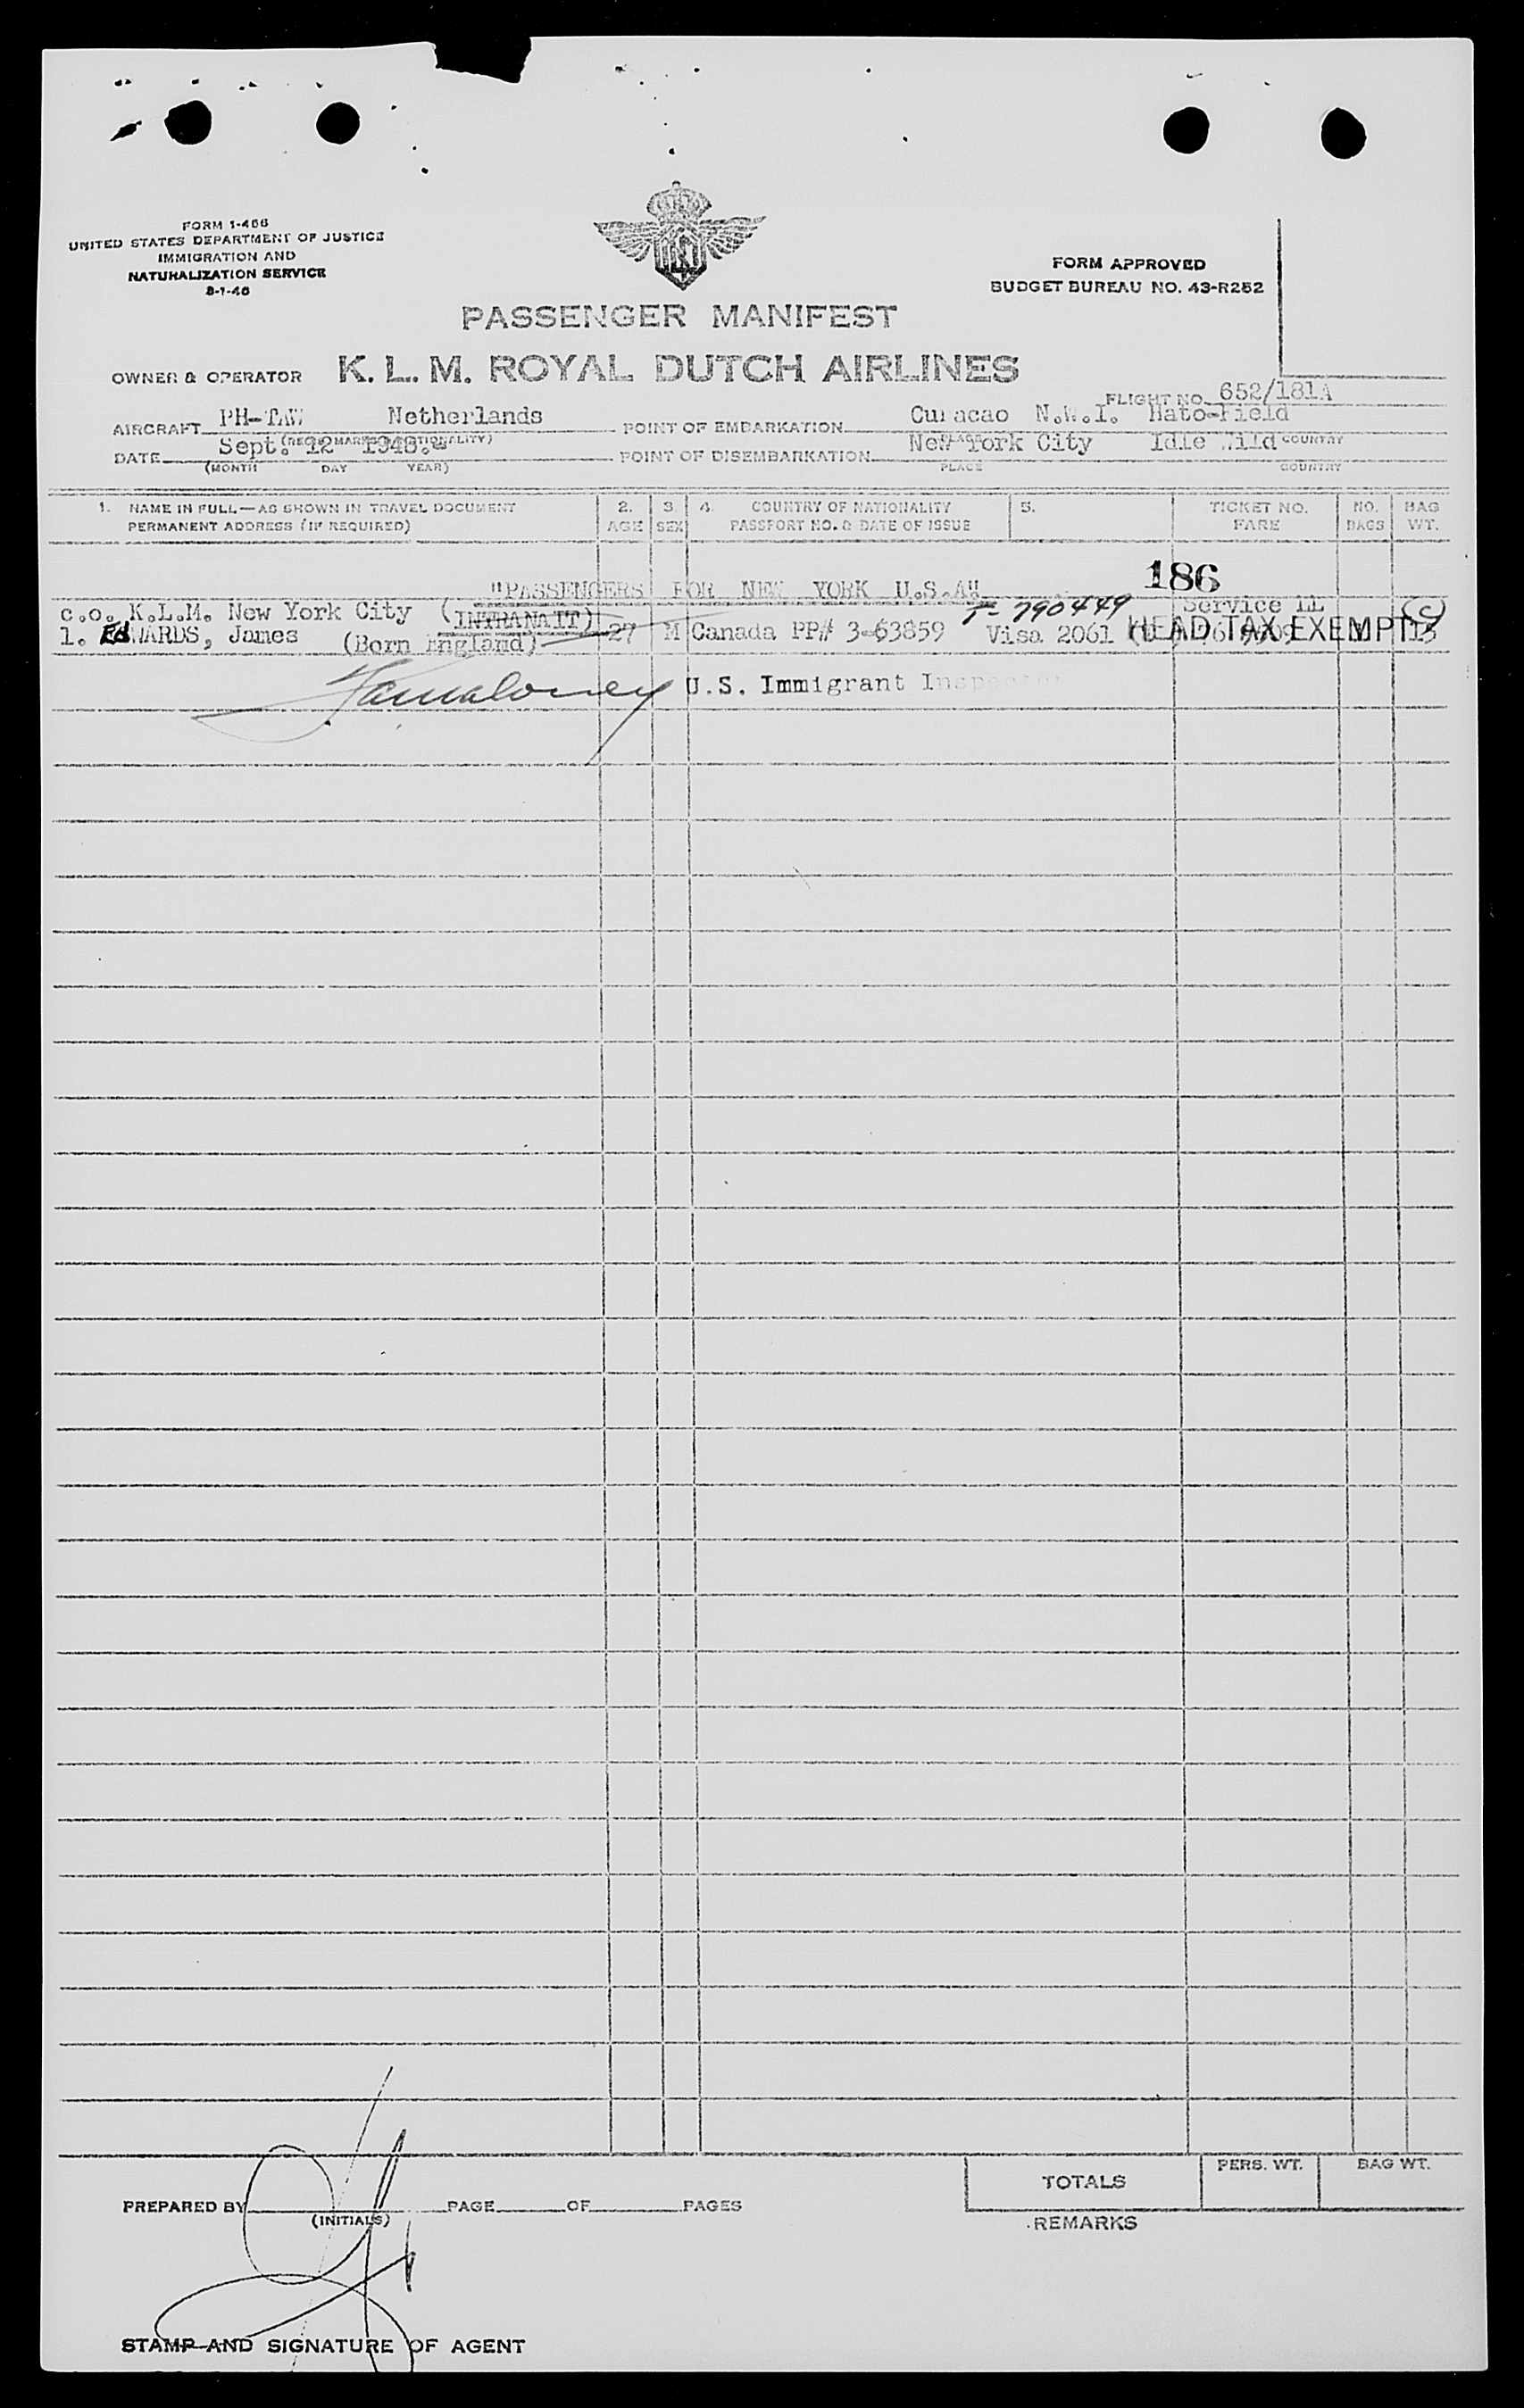 FORM I-466
UNITED STATES DEPARTMENT OF JUSTICE
IMMIGRATION AND
NATURALIZATION SERVICE
8-1-46
FORM APPROVED
BUDGET BUREAU NO. 43-R252
PASSENGER MANIFEST
OWNER & OPERATOR K. L. M. ROYAL DUTCH AIRLINES
FLIGHT NO. 652/181A
AIRCRAFT PH- Netherlands POINT OF EMBARKATION Curacao N.W.I. Hato-Field
DATE Sept. 12 1948. POINT OF DISEMBARKATION New York City Idle Wild COUNTRY
(MONTH DAY YEAR) PLACE COUNTRY
1. NAME IN FULL—AS SHOWN IN TRAVEL DOCUMENT 2. 3. 4. COUNTRY OF NATIONALITY 5. TICKET NO. NO. BAG
PERMANENT ADDRESS (IF REQUIRED) AGE SEX PASSPORT NO. & DATE OF ISSUE FARE BAGS WT.
186
"PASSENGERS FOR NEW YORK U.S.A"
c.o. K.L.M. New York City (INTRANAIT) F- 790449 Service (C)
1. EDWARDS, James (Born England) 27 M Canada PP# 3-63859 Visa 2061 HEAD TAX EXEMPT 15
U.S. Immigrant Inspector
TOTALS PERS. WT. BAG WT.
PREPARED BY (INITIALS) PAGE OF PAGES
REMARKS
STAMP AND SIGNATURE OF AGENT